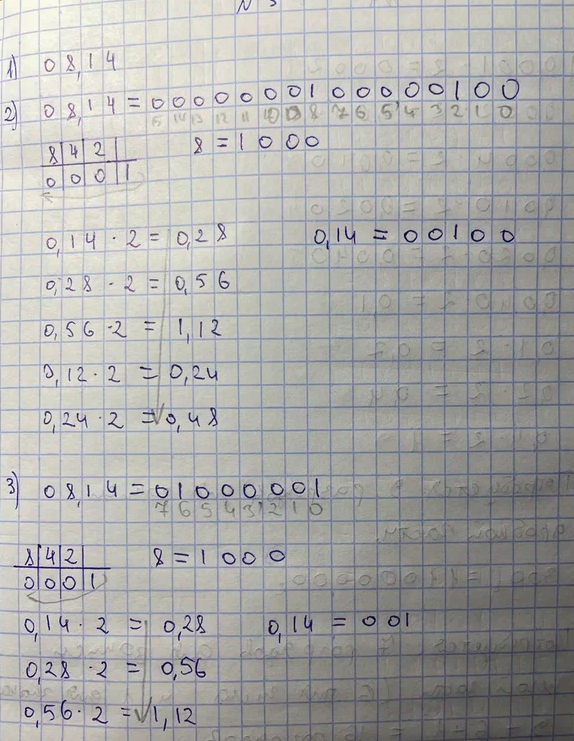 1) 08,14
2) 08,14 = 0000000100000100
15 14 13 12 11 10 9 8 7 6 5 4 3 2 1 0
8 4 2 8 = 1000
0 0 0 1
0,14 · 2 = 0,28 0,14 = 00100
0,28 · 2 = 0,56
0,56 · 2 = 1,12
0,12 · 2 = 0,24
0,24 · 2 = 0,48
3) 08,14 = 01000001
7 6 5 4 3 2 1 0
8 4 2 8 = 1000
0 0 0 1
0,14 · 2 = 0,28 0,14 = 001
0,28 · 2 = 0,56
0,56 · 2 = 1,12